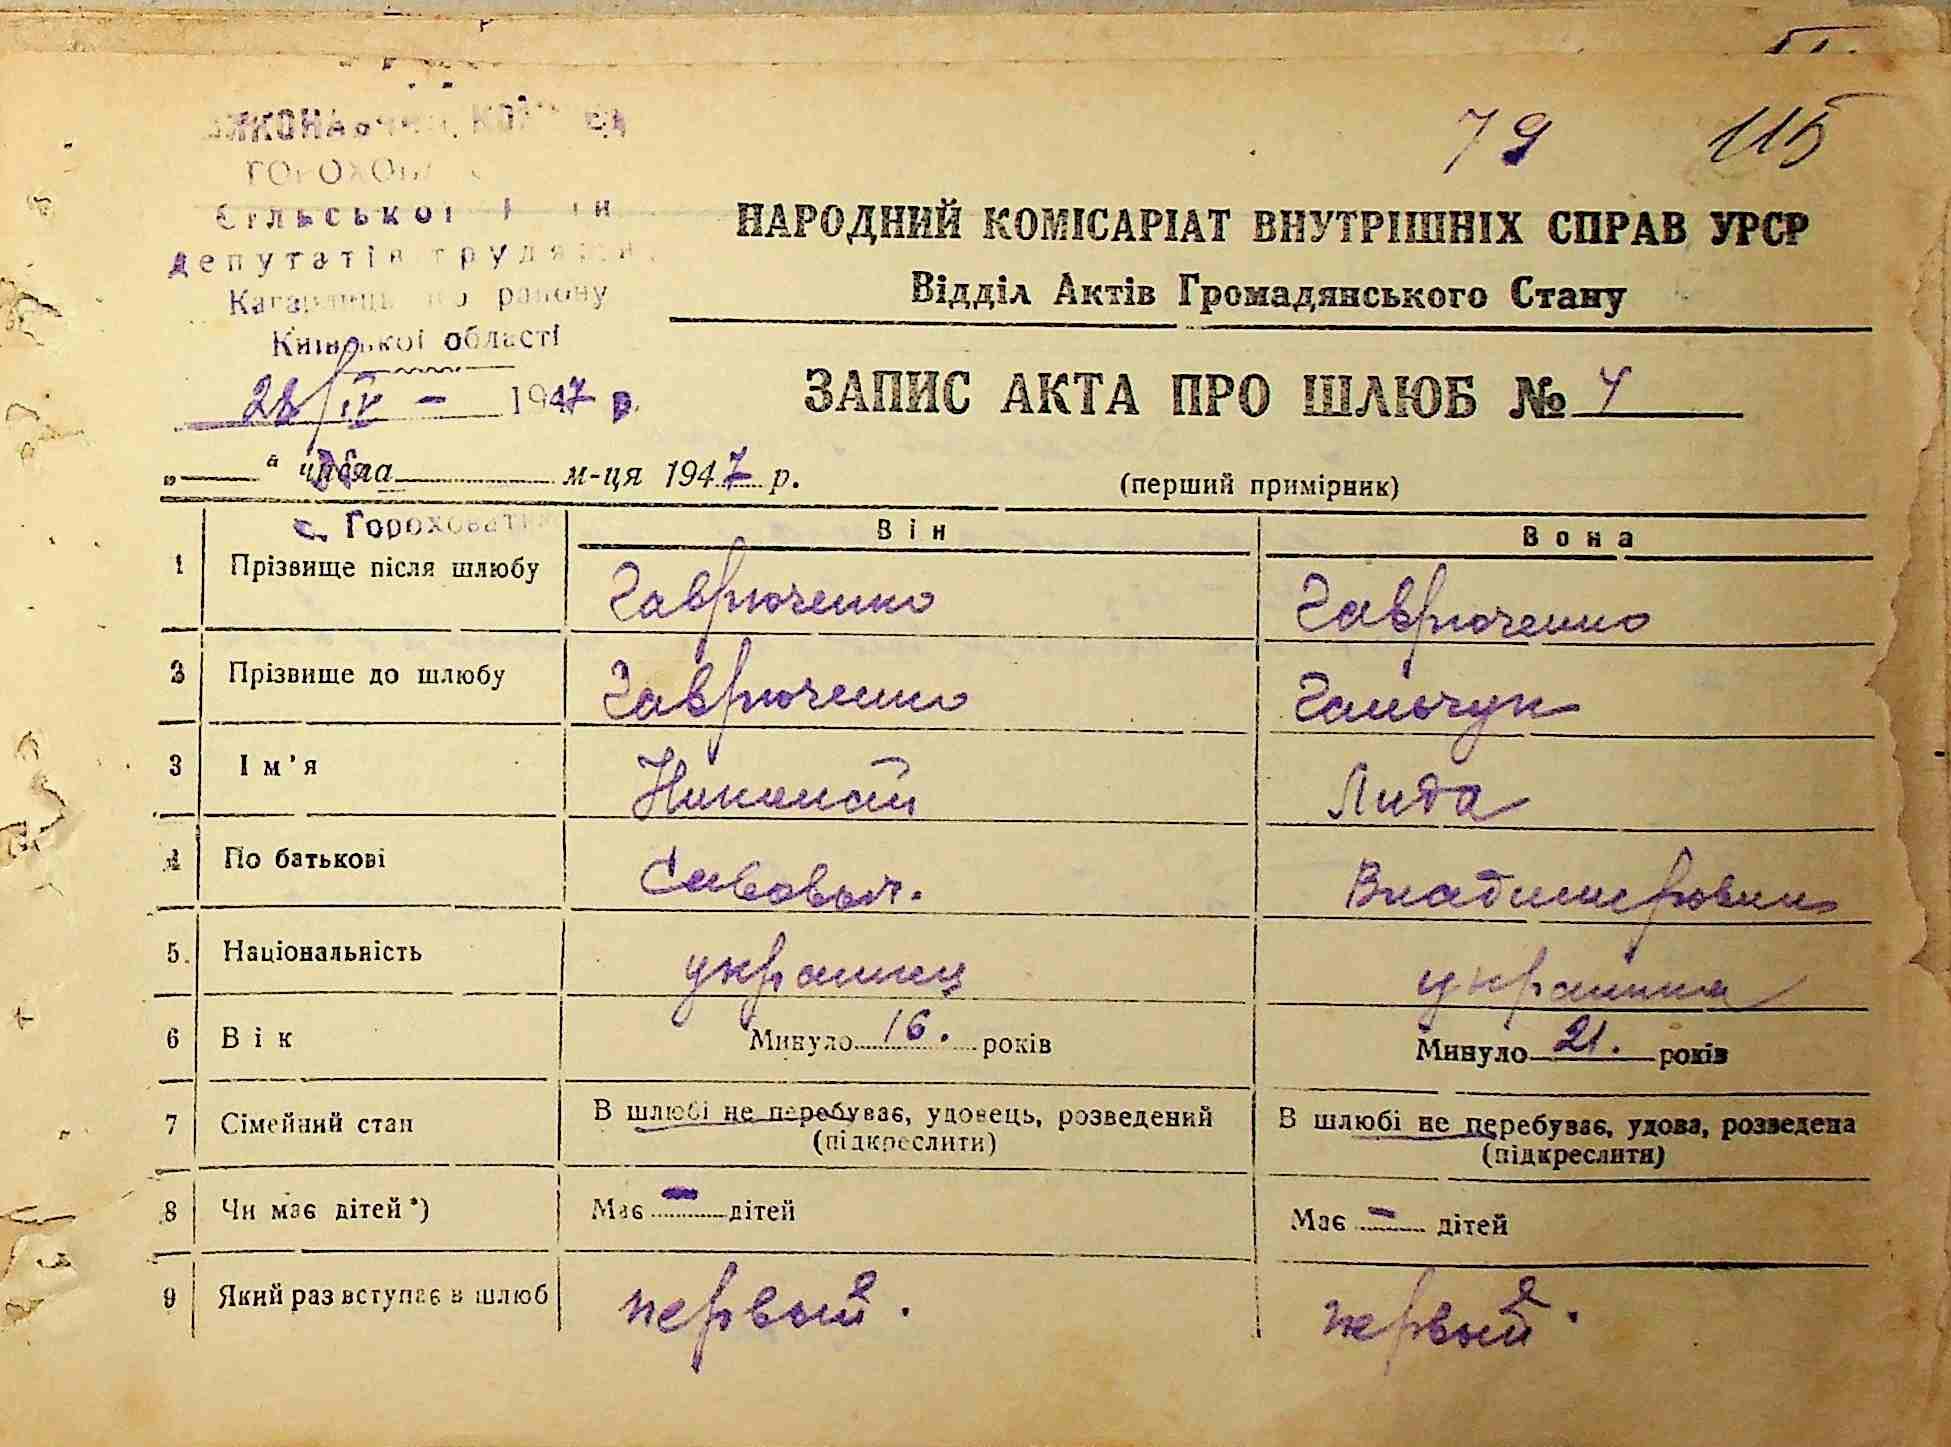 79 115
Сільської
депутатів трудящих
району
Київської області
28/IV - 1947 р.
НАРОДНИЙ КОМІСАРІАТ ВНУТРІШНІХ СПРАВ УРСР
Відділ Актів Громадянського Стану
ЗАПИС АКТА ПРО ШЛЮБ № 4
„ “ числа м-ця 1947 р.
(перший примірник)
с. Гороховатка
Він Вона
1 Прізвище після шлюбу Гаврюченко Гаврюченко
2 Прізвище до шлюбу Гаврюченко Гальчук
3 Ім'я Николай Лида
4 По батькові Савович. Владимировна
5. Національність украинец украинка
6 Вік Минуло 16. років Минуло 21. років
7 Сімейний стан В шлюбі не перебуває, удовець, розведений В шлюбі не перебуває, удова, розведена
(підкреслити) (підкреслити)
8 Чи має дітей*) Має – дітей Має – дітей
9 Який раз вступає в шлюб первый. первый.